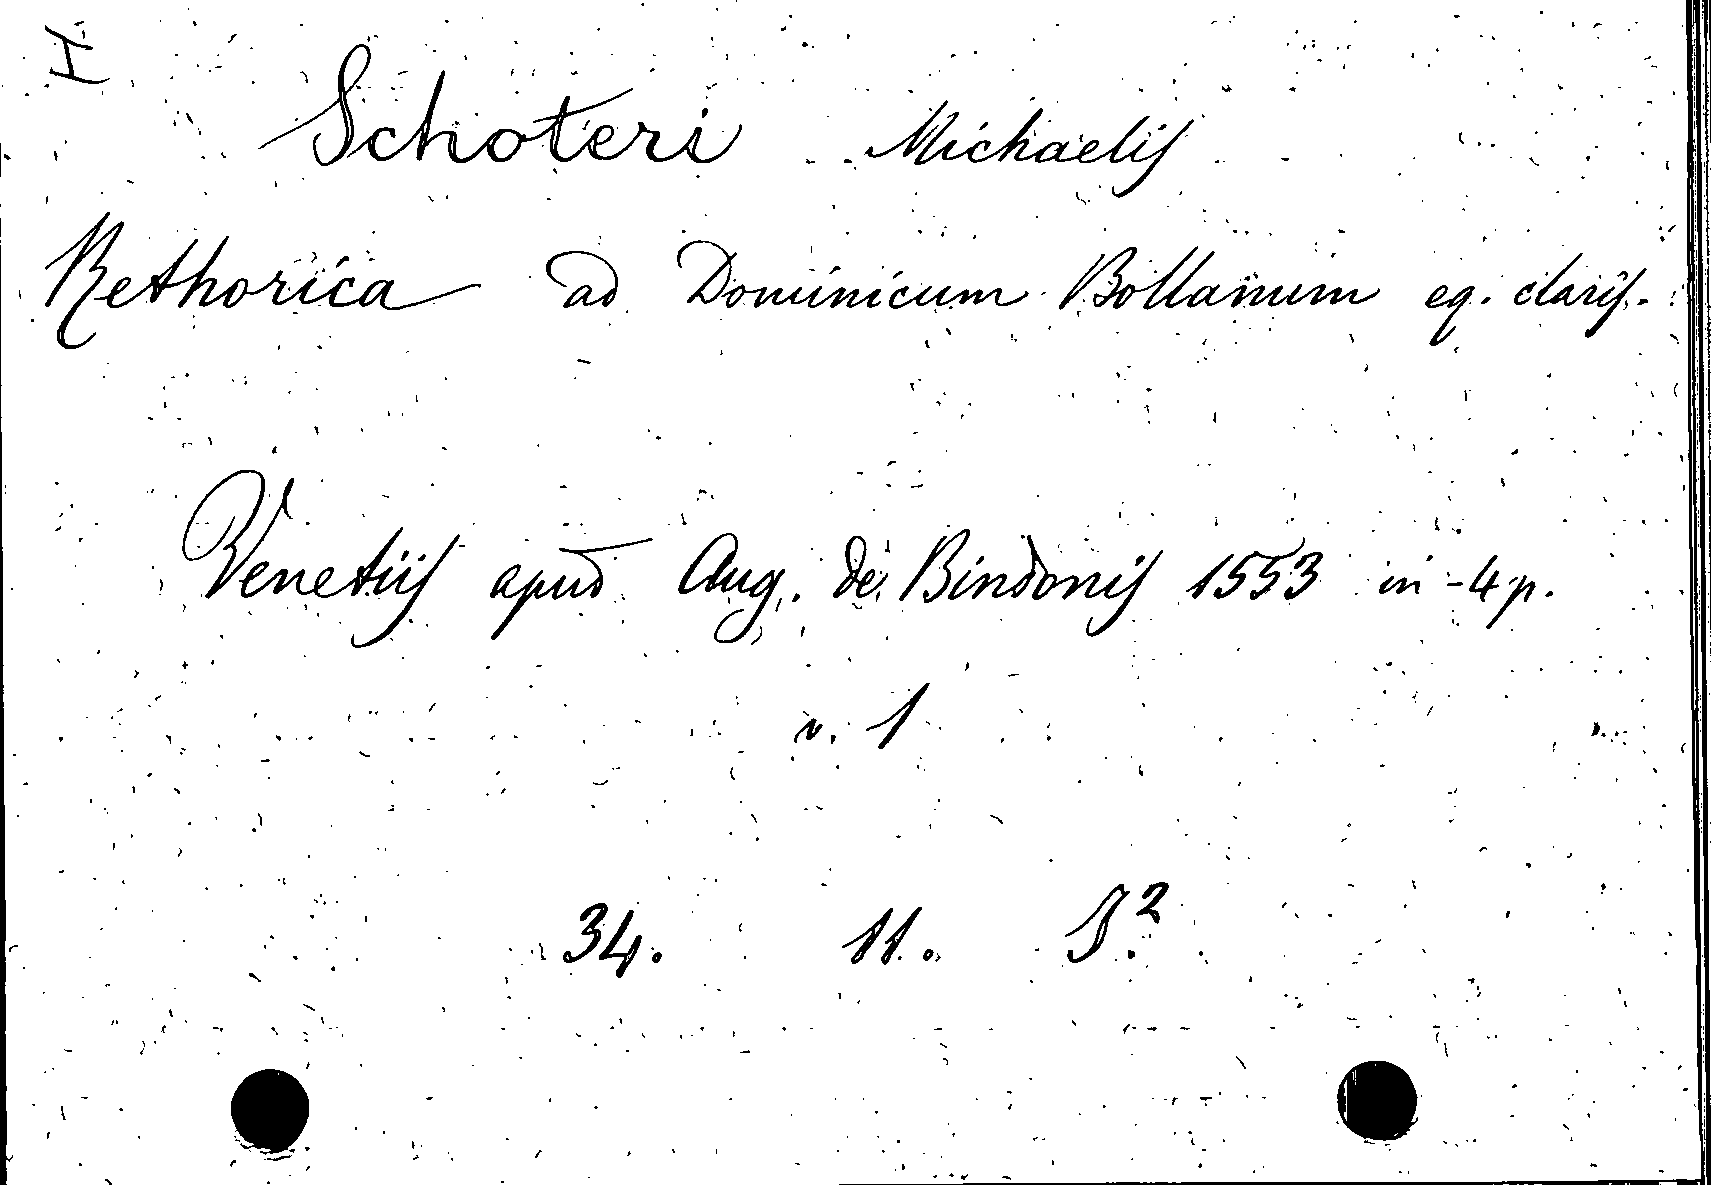 H
Schoteri Michaelis
Rethorica ad Dominicum Bollanum eq. claris.
Venetiis apud Aug. de Bindonis 1553 in-4 p.
v. 1
34. 11. J.²